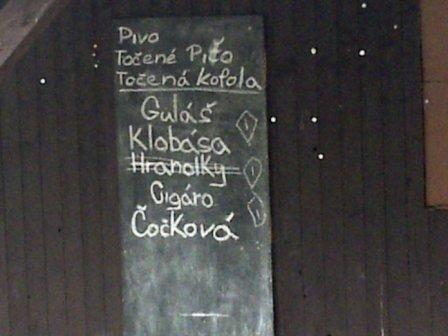 Pivo
Točené Pičo
Točená kofola
Guláš
Klobása
Hranolky
Cigáro
Čočková